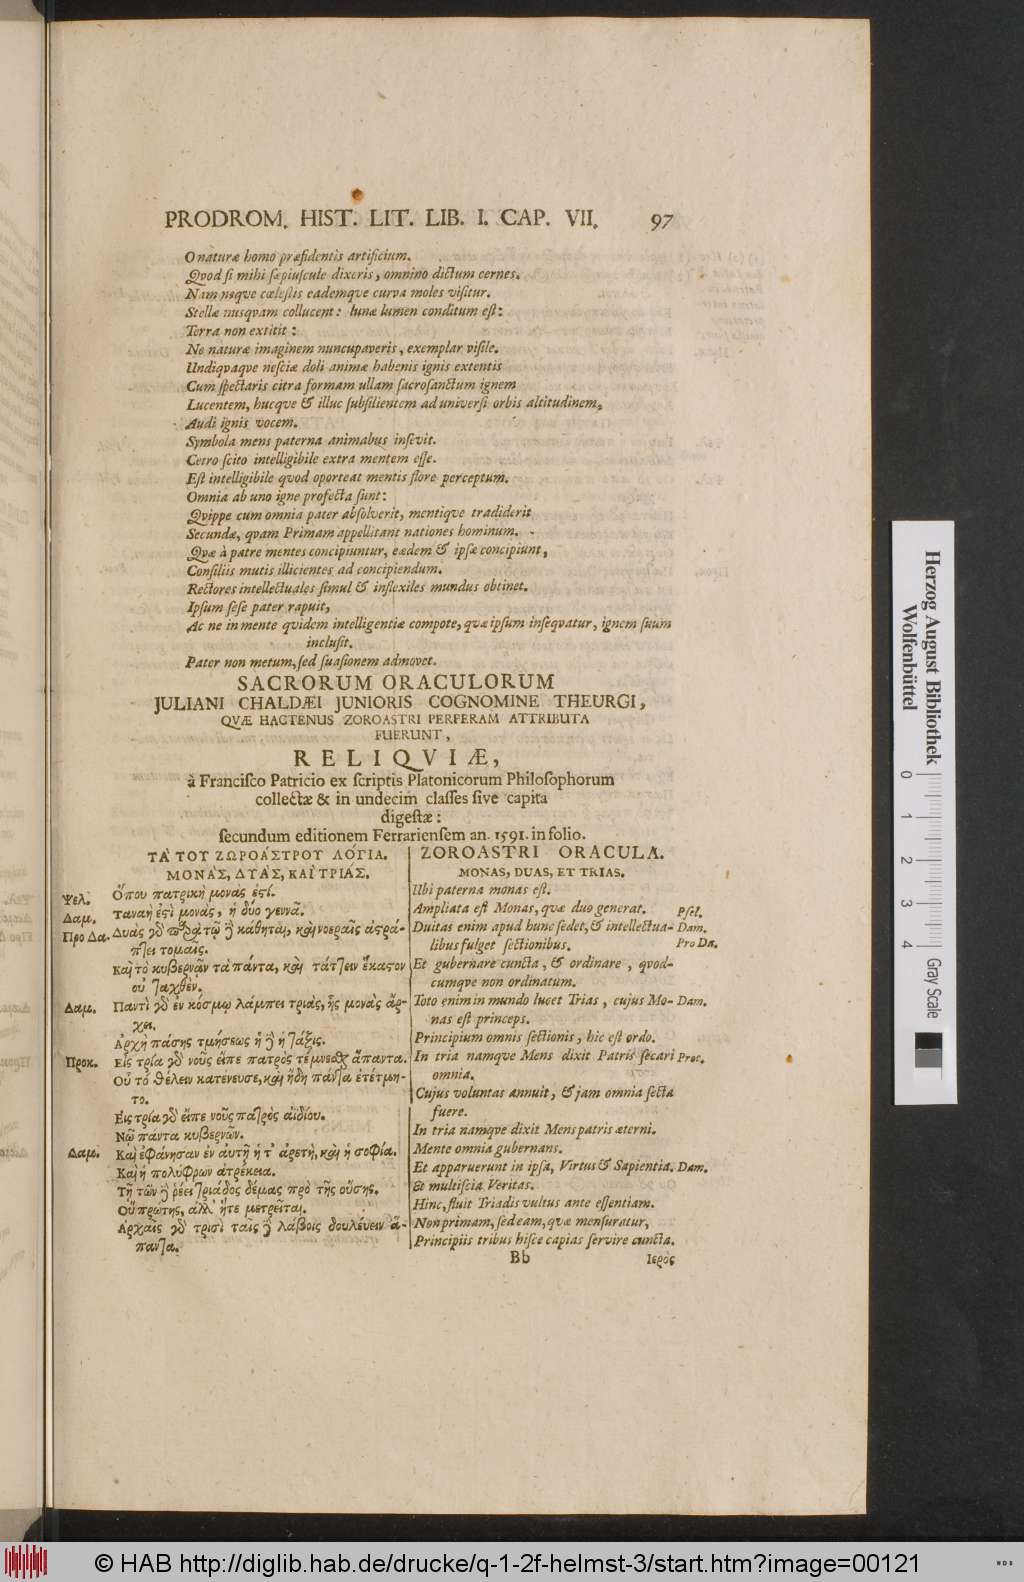 PRODROM. HIST. LIT. LIB. I. CAP. VII. 97
O naturæ homo præsidentis artificium.
Qvod si mihi sæpiuscule dixeris, omnino dictum cernes.
Nam neqve cœlestis eademqve curva moles visitur.
Stellæ nusqvam collucent: lunæ lumen conditum est:
Terra non extitit:
Ne naturæ imaginem nuncupaveris, exemplar visile.
Undiqvaqve nesciæ doli animæ habenis ignis extentis
Cum spectaris citra formam ullam sacrosanctum ignem
Lucentem, hucqve & illuc subsilientem ad universi orbis altitudinem,
Audi ignis vocem.
Symbola mens paterna animabus insevit.
Cetro scito intelligibile extra mentem esse.
Est intelligibile qvod oporteat mentis flore perceptum.
Omnia ab uno igne profecta sunt:
Qvippe cum omnia pater absolverit, mentiqve tradiderit
Secundæ, qvam Primam appellitant nationes hominum.
Qvæ à patre mentes concipiuntur, eædem & ipsæ concipiunt,
Consiliis mutis illicientes ad concipiendum.
Rectores intellectuales simul & inflexiles mundus obtinet.
Ipsum sese pater rapuit,
Ac ne in mente qvidem intelligentiæ compote, qvæ ipsum inseqvatur, ignem suum
inclusit.
Pater non metum, sed suasionem admovet.
SACRORUM ORACULORUM
JULIANI CHALDÆI JUNIORIS COGNOMINE THEURGI,
QVÆ HACTENUS ZOROASTRI PERPERAM ATTRIBUTA
FUERUNT,
RELIQVIÆ,
à Francisco Patricio ex scriptis Platonicorum Philosophorum
collectæ & in undecim classes sive capita
digestæ:
secundum editionem Ferrariensem an. 1591. in folio.
ΤᾺ ΤΟΥ ΖΩΡΟΆΣΤΡΟΥ ΛΌΓΙΑ.
ΜΟΝᾺΣ, ΔΥᾺΣ, ΚΑῚ ΤΡΙΆΣ.
Ψελ. Ὅπου πατρικὴ μονὰς ἐστί.
Δαμ. Ταναή ἐστὶ μονὰς, ἡ δύο γεννᾷ.
Προ Δα. Δυὰς γὸ παρὰ τῷ δὲ καθηται, καὶ νοεραῖς ἀστρά-
πτει τομαῖς.
Καὶ τὸ κυβερνᾷν τὰ πάντα, καὶ τάττειν ἕκαστον
οὐ ταχθὲν.
Δαμ. Παντὶ γὸ ἐν κόσμῳ λάμπει τριὰς, ἧς μονὰς ἄρ-
χει.
Ἀρχὴ πάσης τμήσεως ἡ δὲ ἡ τάξις.
Προκ. Εἰς τρία γὸ νοῦς εἶπε πατρὸς τέμνεσθαι ἅπαντα.
Οὗ τὸ θέλειν κατένευσε, καὶ ἤδη πάντα ἐτέτμη-
το.
Εἰς τρία γὸ εἶπε νοῦς πατρὸς ἀϊδίου.
Νῷ πάντα κυβερνῶν.
Δαμ. Καὶ ἐφάνησαν ἐν αὐτῇ ἡ τ' ἀρετὴ, καὶ ἡ σοφία.
Καὶ ἡ πολύφρων ἀτρέκεια.
Τῇ τῶν δὲ ῥέει τριάδος δέμας πρὸ τῆς οὔσης.
Οὐ πρώτης, ἀλλ' ἥτε μετρεῖται.
Ἀρχαῖς γὸ τρισὶ ταῖς δὲ λάβοις δουλεύειν ἅ-
παντα.
ZOROASTRI ORACULA.
MONAS, DUAS, ET TRIAS.
Ubi paterna monas est.
Ampliata est Monas, qvæ duo generat. Psel.
Duitas enim apud hunc sedet, & intellectua- Dam.
libus fulget sectionibus. Pro Da.
Et gubernare cuncta, & ordinare, qvod-
cumqve non ordinatum.
Toto enim in mundo lucet Trias, cujus Mo- Dam.
nas est princeps.
Principium omnis sectionis, hic est ordo.
In tria namqve Mens dixit Patris secari Proc.
omnia.
Cujus voluntas annuit, & jam omnia secta
fuere.
In tria namqve dixit Mens patris æterni.
Mente omnia gubernans.
Et apparuerunt in ipsa, Virtus & Sapientia. Dam.
Et multiscia Veritas.
Hinc, fluit Triadis vultus ante essentiam.
Non primam, sed eam, qvæ mensuratur,
Principiis tribus hisce capias servire cuncta.
Bb Ιερὸς
Herzog August Bibliothek
Wolfenbüttel
0 1 2 3 4 Gray Scale
© HAB http://diglib.hab.de/drucke/q-1-2f-helmst-3/start.htm?image=00121
WDB